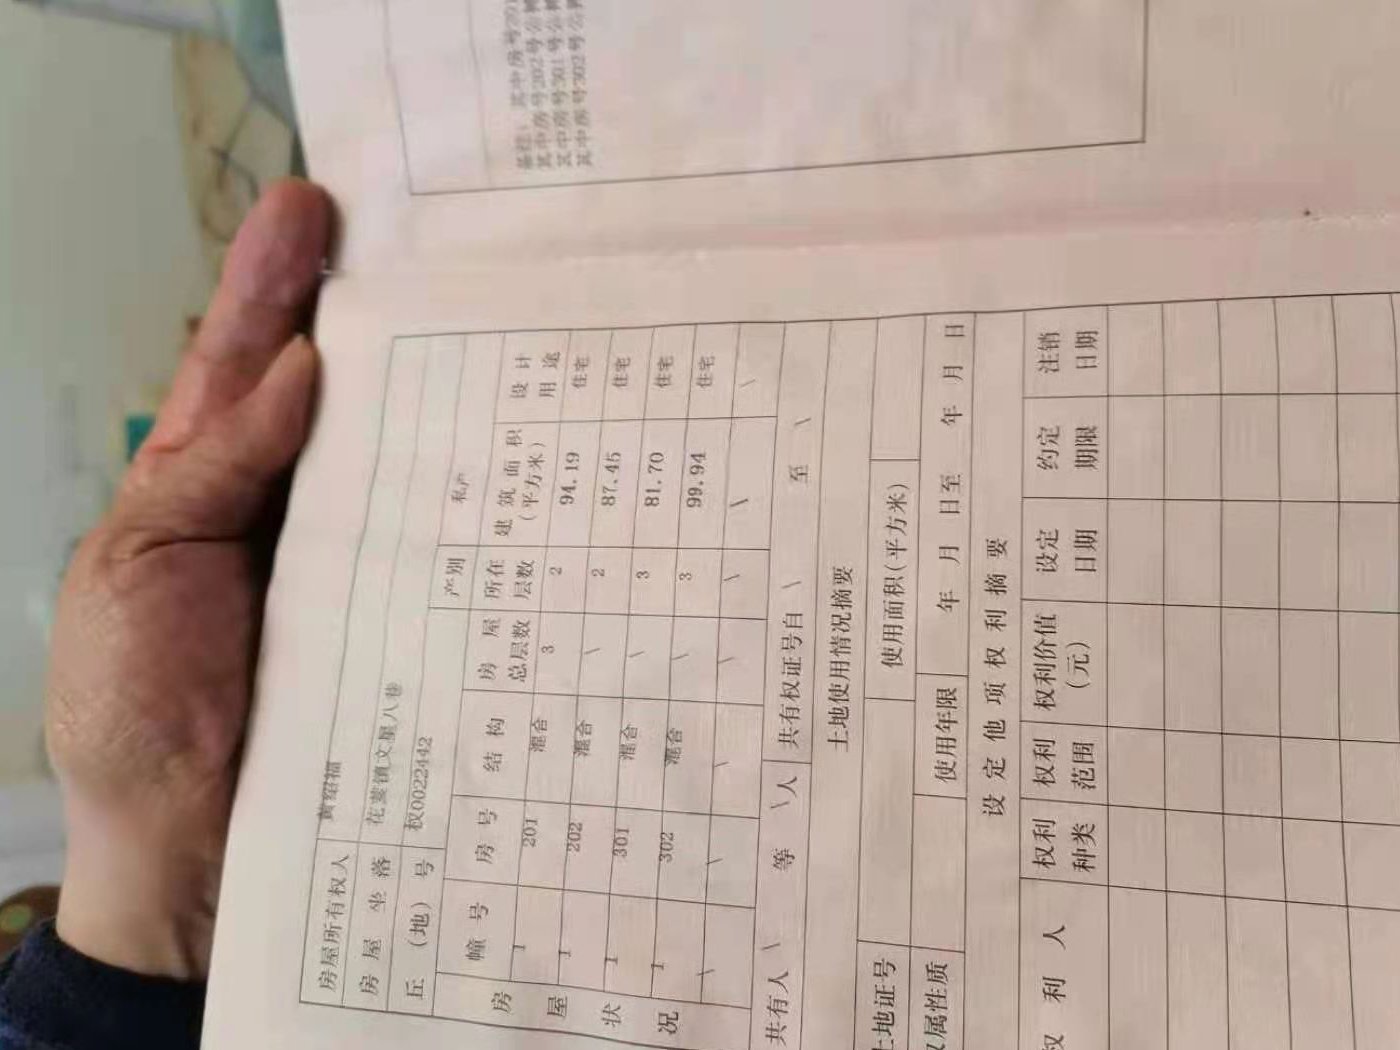 房屋所有权人 黄绍福
房屋坐落 花蒌镇文星八巷
丘（地）号 权0022442 产别 私产
房屋状况 幢号 房号 结构 房屋总层数 所在层数 建筑面积（平方米） 设计用途
1 201 混合 3 2 94.19 住宅
1 202 混合 \ 2 87.45 住宅
1 301 混合 \ 3 81.70 住宅
1 302 混合 \ 3 99.94 住宅
\ \ \ \ \ \ \
共有人 \ 等 \人 共有权证号自 \ 至 \
土地使用情况摘要
土地证号 使用面积(平方米)
权属性质 使用年限 年 月 日至 年 月 日
设定他项权利摘要
权利人 权利种类 权利范围 权利价值（元） 设定日期 约定期限 注销日期
备注：其中房号201
其中房号202号公摊
其中房号301号公摊
其中房号302号公摊